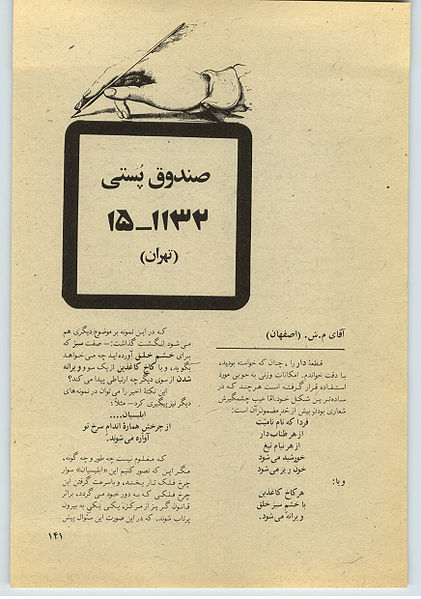 صندوق پُستی
۱۵_۱۱۳۲
(تهران)
آقای م.ش. (اصفهان)
قطعهٔ دار را، چنان که خواسته بودید،
با دقت خواندم. امکانات وزنی به خوبی مورد
استفاده قرار گرفته است هر چند که در
ساده‌ترین شکل خود. امّا عیب چشمگیرش
شعاری بودن بیش از حد مضمون آن است:
فردا که نام نامیّت
از هر طناب دار
از هر نیام تیغ
خورشید می شود
خون ریز می شود
و یا:
هر کاخ کاغذین
با خشم سبز خلق
ویرانه می شود.
که در این نمونه بر موضوع دیگری هم
می شود انگشت گذاشت: — صفت سبز که
برای خشم خلق آورده‌اید چه می خواهد
بگوید، و با کاخ کاغذین از یک سو و ویرانه
شدن از سوی دیگر چه ارتباطی پیدا می کند؟
این نکتهٔ اخیر را می توان در نمونه‌های
دیگر نیز پیگیری کرد — مثلاً:
ابلیسیان....
از چرخش همارهٔ اندام سرخ تو
آواره می شوند.
که معلوم نیست چه طور و چه گونه،
مگر این که تصور کنیم این «ابلیسیان» سوار
چرخ فلک تار بوده‌ند، و با سرعت گرفتن این
چرخ فلکی که به دور خود می گردد، براثر
قانون گریز از مرکز، یکی یکی به بیرون
پرتاب شوند. که در این صورت این سئوال پیش
۱۴۱